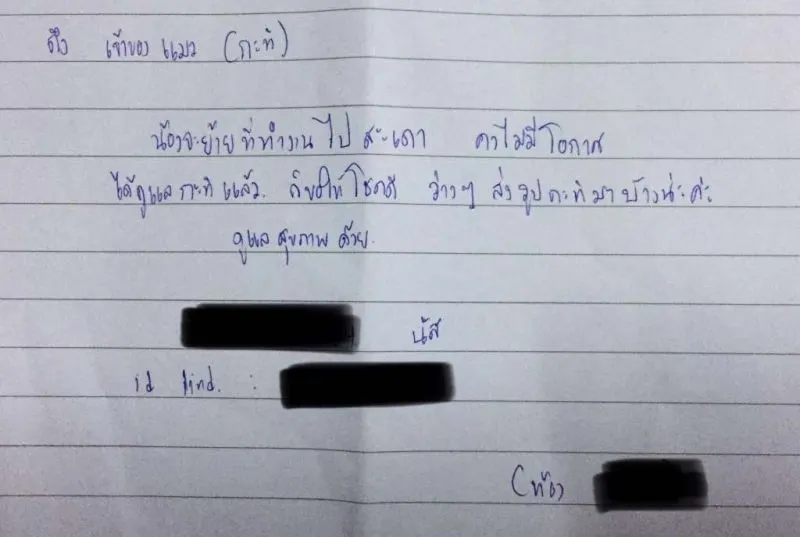 ถึง เจ้าของแมว (กะทิ)
น้องจะย้ายที่ทำงานไป สะเดา คงไม่มีโอกาส
ได้ดูแลกะทิแล้ว. ก็ขอให้โชคดี ว่างๆ ส่งรูปกะทิมาบ้างน่ะค่ะ
ดูแลสุขภาพด้วย.
นัส
id lind. :
(ห้อง